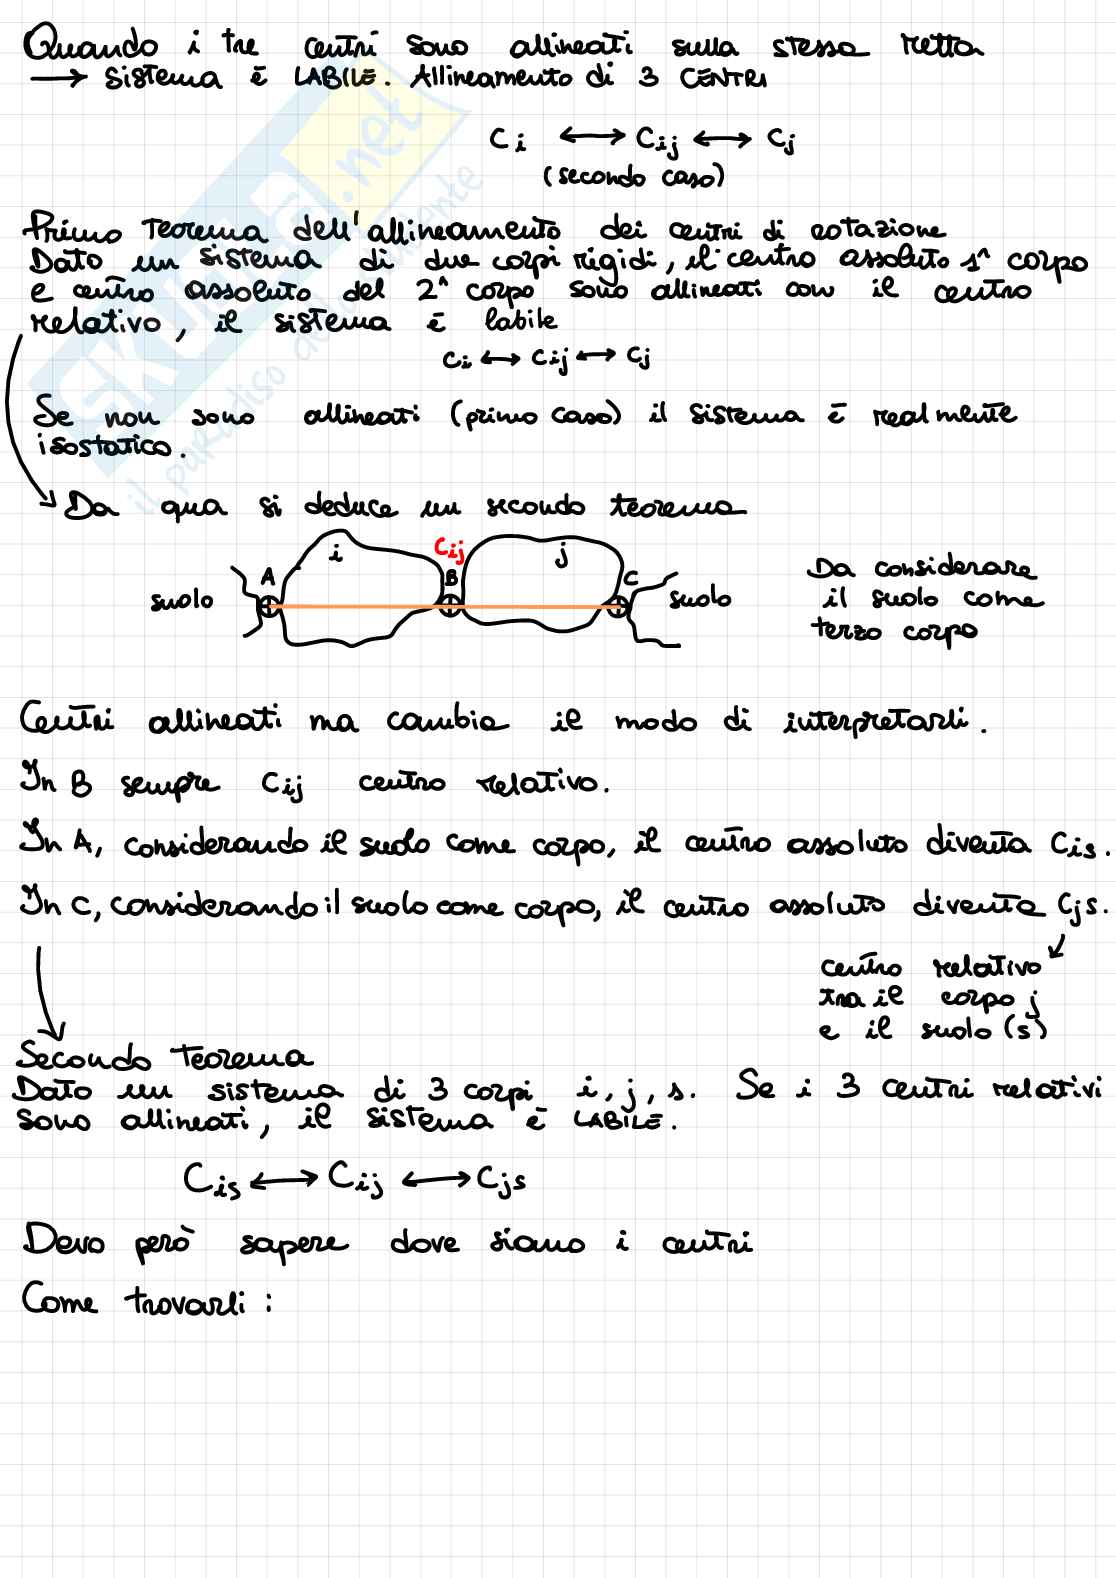 Quando i tre centri sono allineati sulla stessa retta
→ sistema è LABILE. Allineamento di 3 CENTRI
Ci ↔ Cij ↔ Cj
(secondo caso)
Primo Teorema dell'allineamento dei centri di rotazione
Dato un sistema di due corpi rigidi, il centro assoluto 1^ corpo
e centro assoluto del 2^ corpo sono allineati con il centro
relativo, il sistema è labile
Ci ↔ Cij ↔ Cj
Se non sono allineati (primo caso) il sistema è realmente
isostatico.
Da qua si deduce un secondo teorema
i
Cij
j
A
B
C
suolo
suolo
Da considerare
il suolo come
terzo corpo
Centri allineati ma cambia il modo di interpretarli.
In B sempre Cij centro relativo.
In A, considerando il suolo come corpo, il centro assoluto diventa Cis.
In C, considerando il suolo come corpo, il centro assoluto diventa Cjs.
centro relativo
tra il corpo j
e il suolo (s)
Secondo Teorema
Dato un sistema di 3 corpi i, j, s. Se i 3 centri relativi
sono allineati, il sistema è LABILE.
Cis ↔ Cij ↔ Cjs
Devo però sapere dove siano i centri
Come trovarli :
skuola.net
il paradiso dello studente